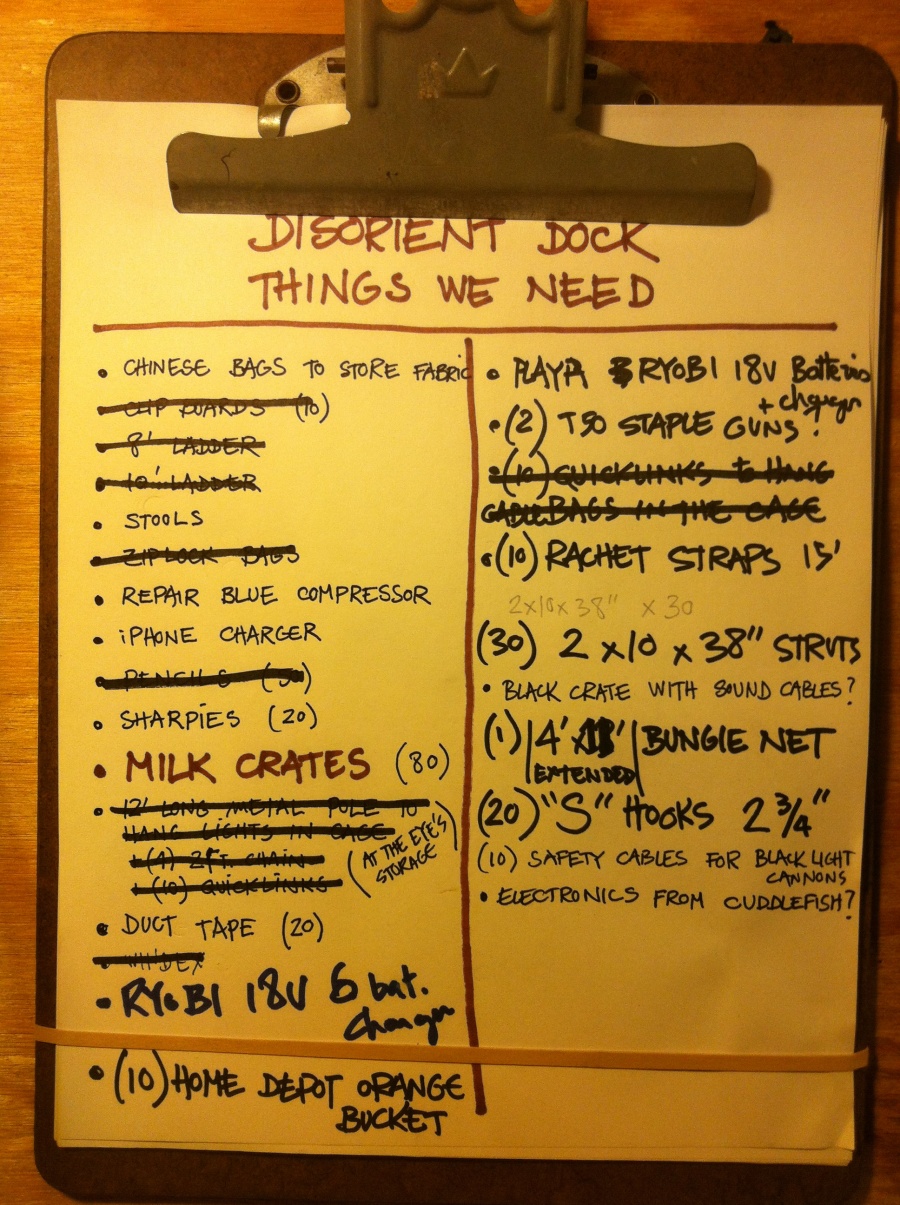 DISORIENT DOCK
THINGS WE NEED
• CHINESE BAGS TO STORE FABRIC
• CLIP BOARDS (10)
• 8' LADDER
• 10' LADDER
• STOOLS
• ZIPLOCK BAGS
• REPAIR BLUE COMPRESSOR
• iPHONE CHARGER
• PENCILS
• SHARPIES (20)
• MILK CRATES (80)
• 12' LONG METAL POLE TO
HANG LIGHTS IN CAGE
(4) 2FT. CHAIN
(10) QUICKLINKS
(AT THE EYE'S
STORAGE)
• DUCT TAPE (20)
• WINDEX
• RYOBI 18V 6 bat.
Charger
• (10) HOME DEPOT ORANGE
BUCKET
• PLAYA RYOBI 18V Batteries
+ charger
• (2) T50 STAPLE GUNS
• (10) QUICKLINKS to HANG
CABLE BAGS IN THE CAGE
• (10) RACHET STRAPS 15'
2x10x38" x 30
(30) 2 x10 x 38" STRUTS
• BLACK CRATE WITH SOUND CABLES?
(1) 4' BUNGIE NET
EXTENDED
(20) "S" HOOKS 2 3/4"
(10) SAFETY CABLES FOR BLACK LIGHT
CANNONS
• ELECTRONICS FROM CUDDLEFISH?